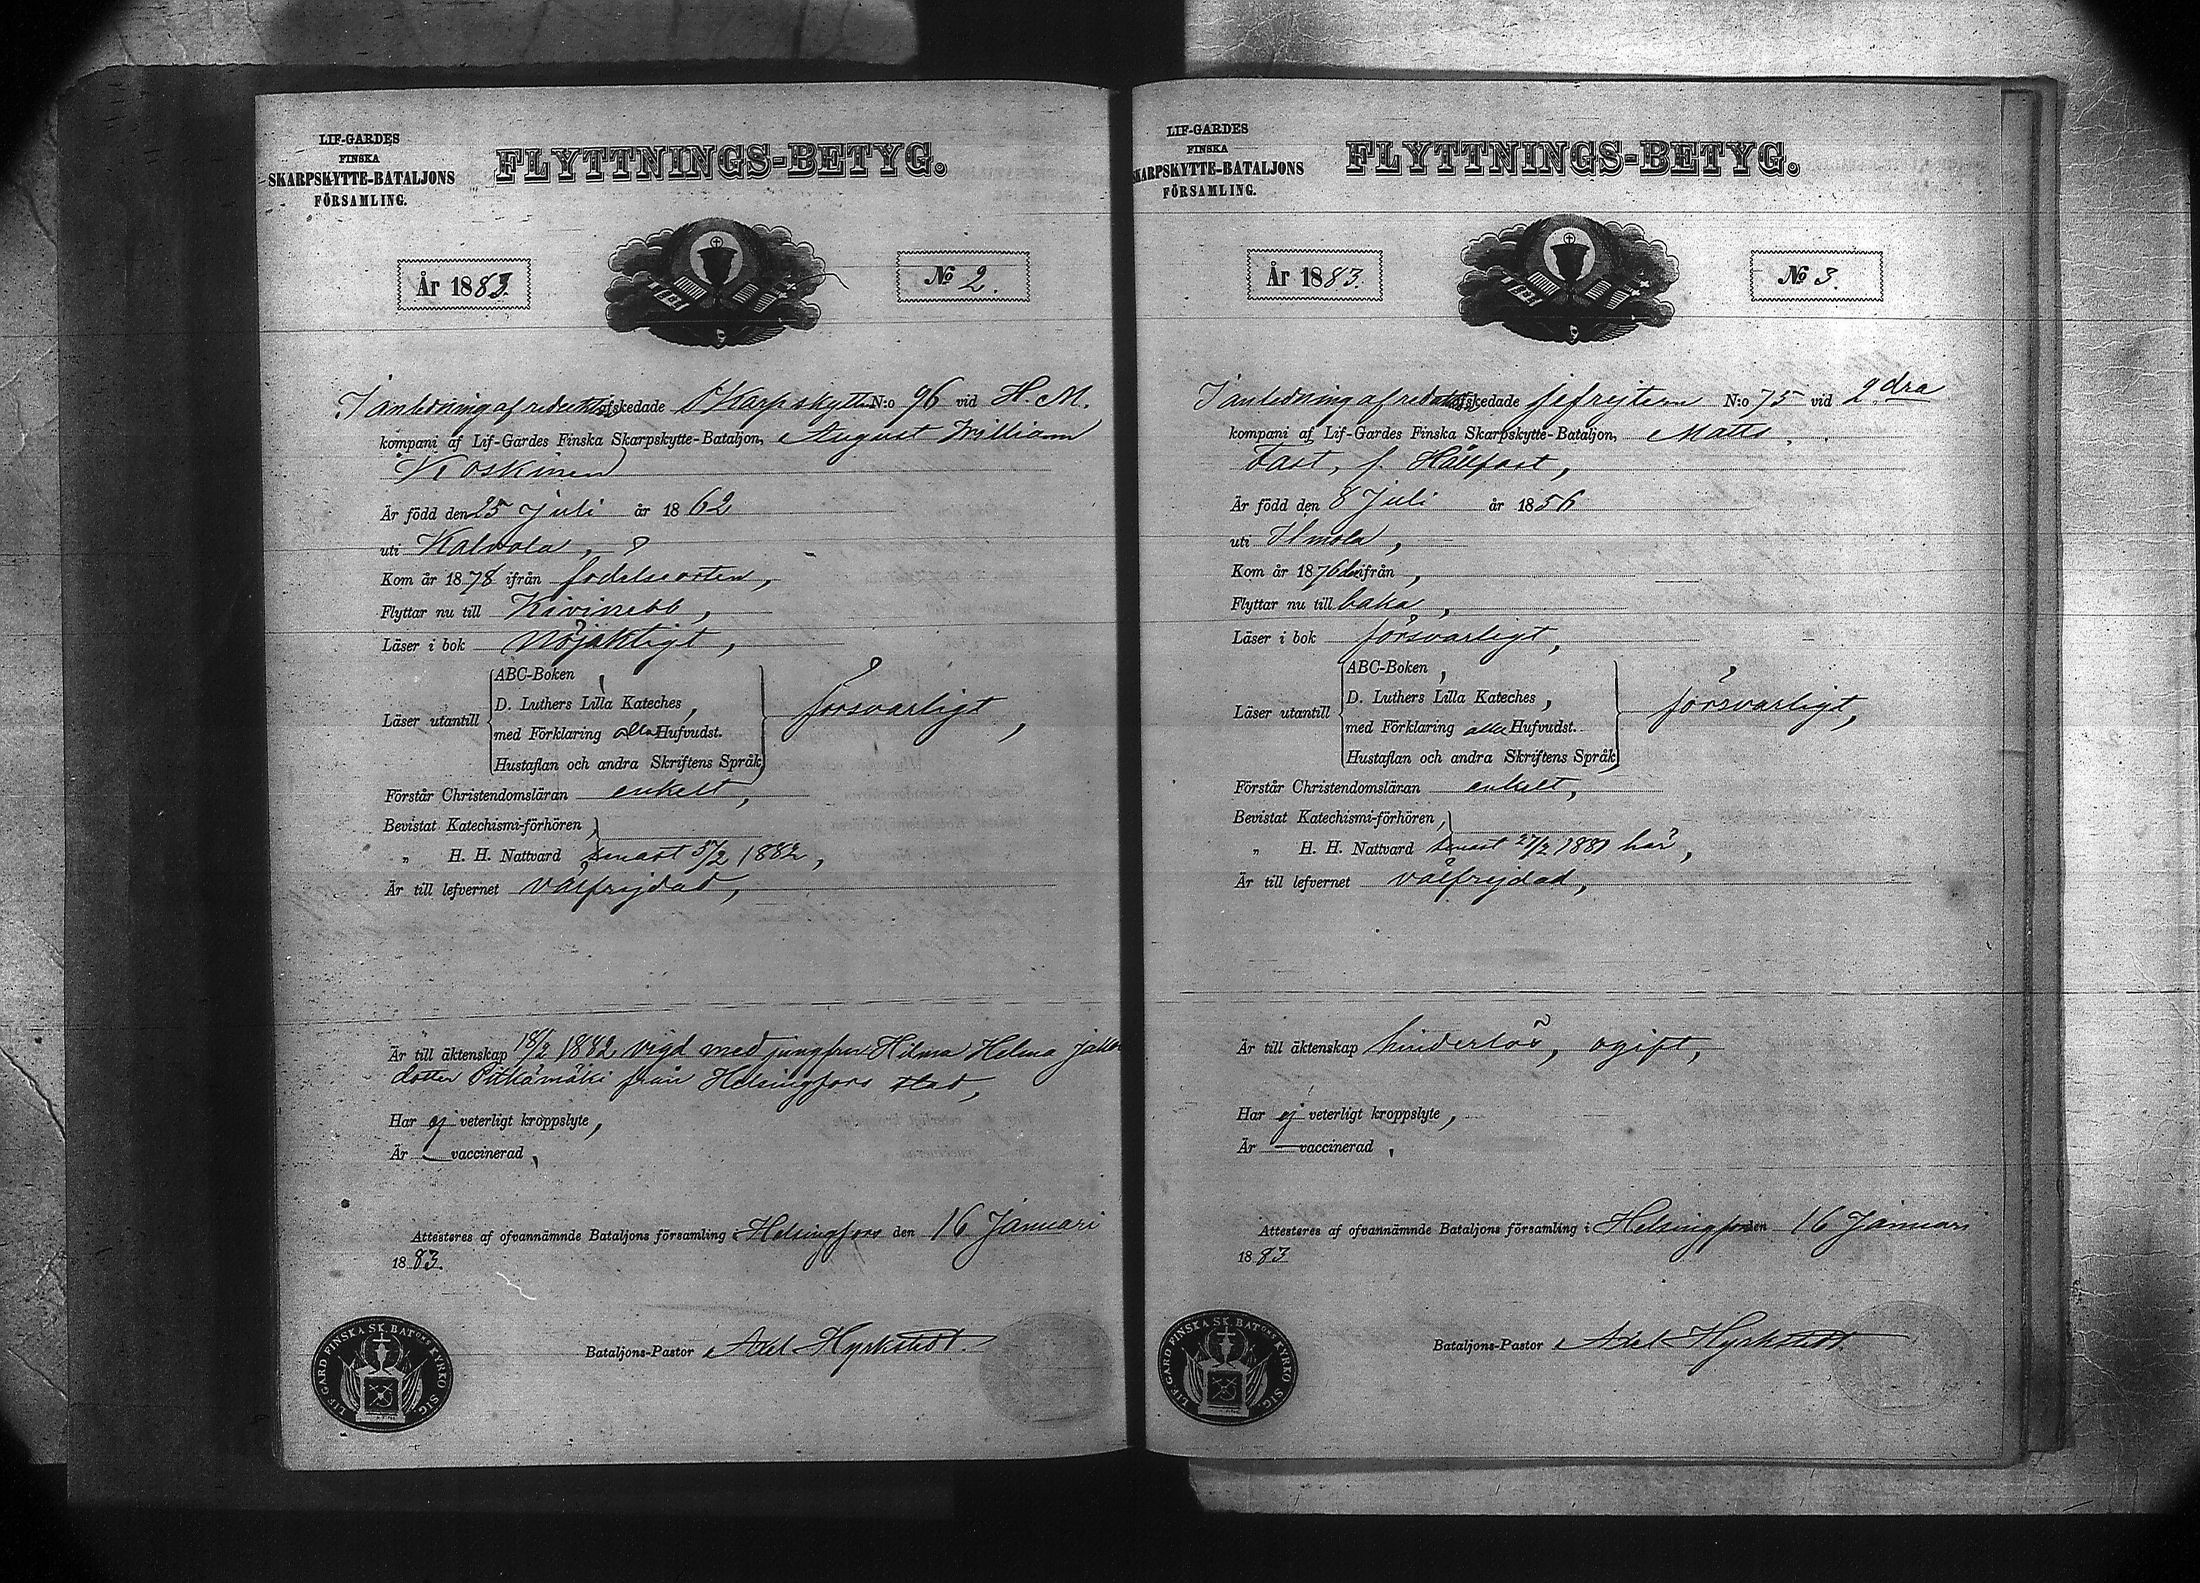 LIF-GARDES
FINSKA
SKARPSKYTTE-BATALJONS
FÖRSAMLING.
FLYTTNINGS-BETYG.
År 1883.
No 2.
I anledning af afskedade Skarpskytten N:o 96 vid H. M.
kompani af Lif-Gardes Finska Skarpskytte-Bataljon, August William
Koskinen
Är född den 25 Juli år 1862
uti Kalvola,
Kom år 1878 ifrån födelseorten,
Flyttar nu till Kivinebb,
Läser i bok nöjaktigt,
Läser utantill
ABC-Boken,
D. Luthers Lilla Kateches,
med Förklaring alla Hufvudst.
Hustaflan och andra Skriftens Språk
försvarligt,
Förstår Christendomsläran enkelt,
Bevistat Katechismi-förhören,
„ H. H. Nattvard senast 5/2 1882,
Är till lefvernet välfrejdad,
Är till äktenskap 18/2 1882 vigd med jungfrun Hilma Helena
dotter Pitkämäki från Helsingfors stad,
Har ej veterligt kroppslyte,
Är — vaccinerad,
Attesteras af ofvannämnde Bataljons församling i Helsingfors den 16 Januari
1883.
Bataljons-Pastor Axel Hyrkstedt.
LIF-GARD FINSKA SK. BATONS KYRKO SIG.
LIF-GARDES
FINSKA
SKARPSKYTTE-BATALJONS
FÖRSAMLING.
FLYTTNINGS-BETYG.
År 1883.
No 3.
I anledning af afskedade jefrejtern N:o 75 vid 2dra
kompani af Lif-Gardes Finska Skarpskytte-Bataljon, Matts
Fast, f. Hållfast,
Är född den 8 Juli år 1856
uti Ilmola,
Kom år 1876 därifrån,
Flyttar nu till baka,
Läser i bok försvarligt,
Läser utantill
ABC-Boken,
D. Luthers Lilla Kateches,
med Förklaring alla Hufvudst.
Hustaflan och andra Skriftens Språk
försvarligt,
Förstår Christendomsläran enkelt,
Bevistat Katechismi-förhören,
„ H. H. Nattvard senast 27/2 1881 här,
Är till lefvernet välfrejdad,
Är till äktenskap hinderlös, ogift,
Har ej veterligt kroppslyte,
Är — vaccinerad,
Attesteras af ofvannämnde Bataljons församling i Helsingfors den 16 Januari
1883
Bataljons-Pastor Axel Hyrkstedt.
LIF-GARD FINSKA SK. BATONS KYRKO SIG.